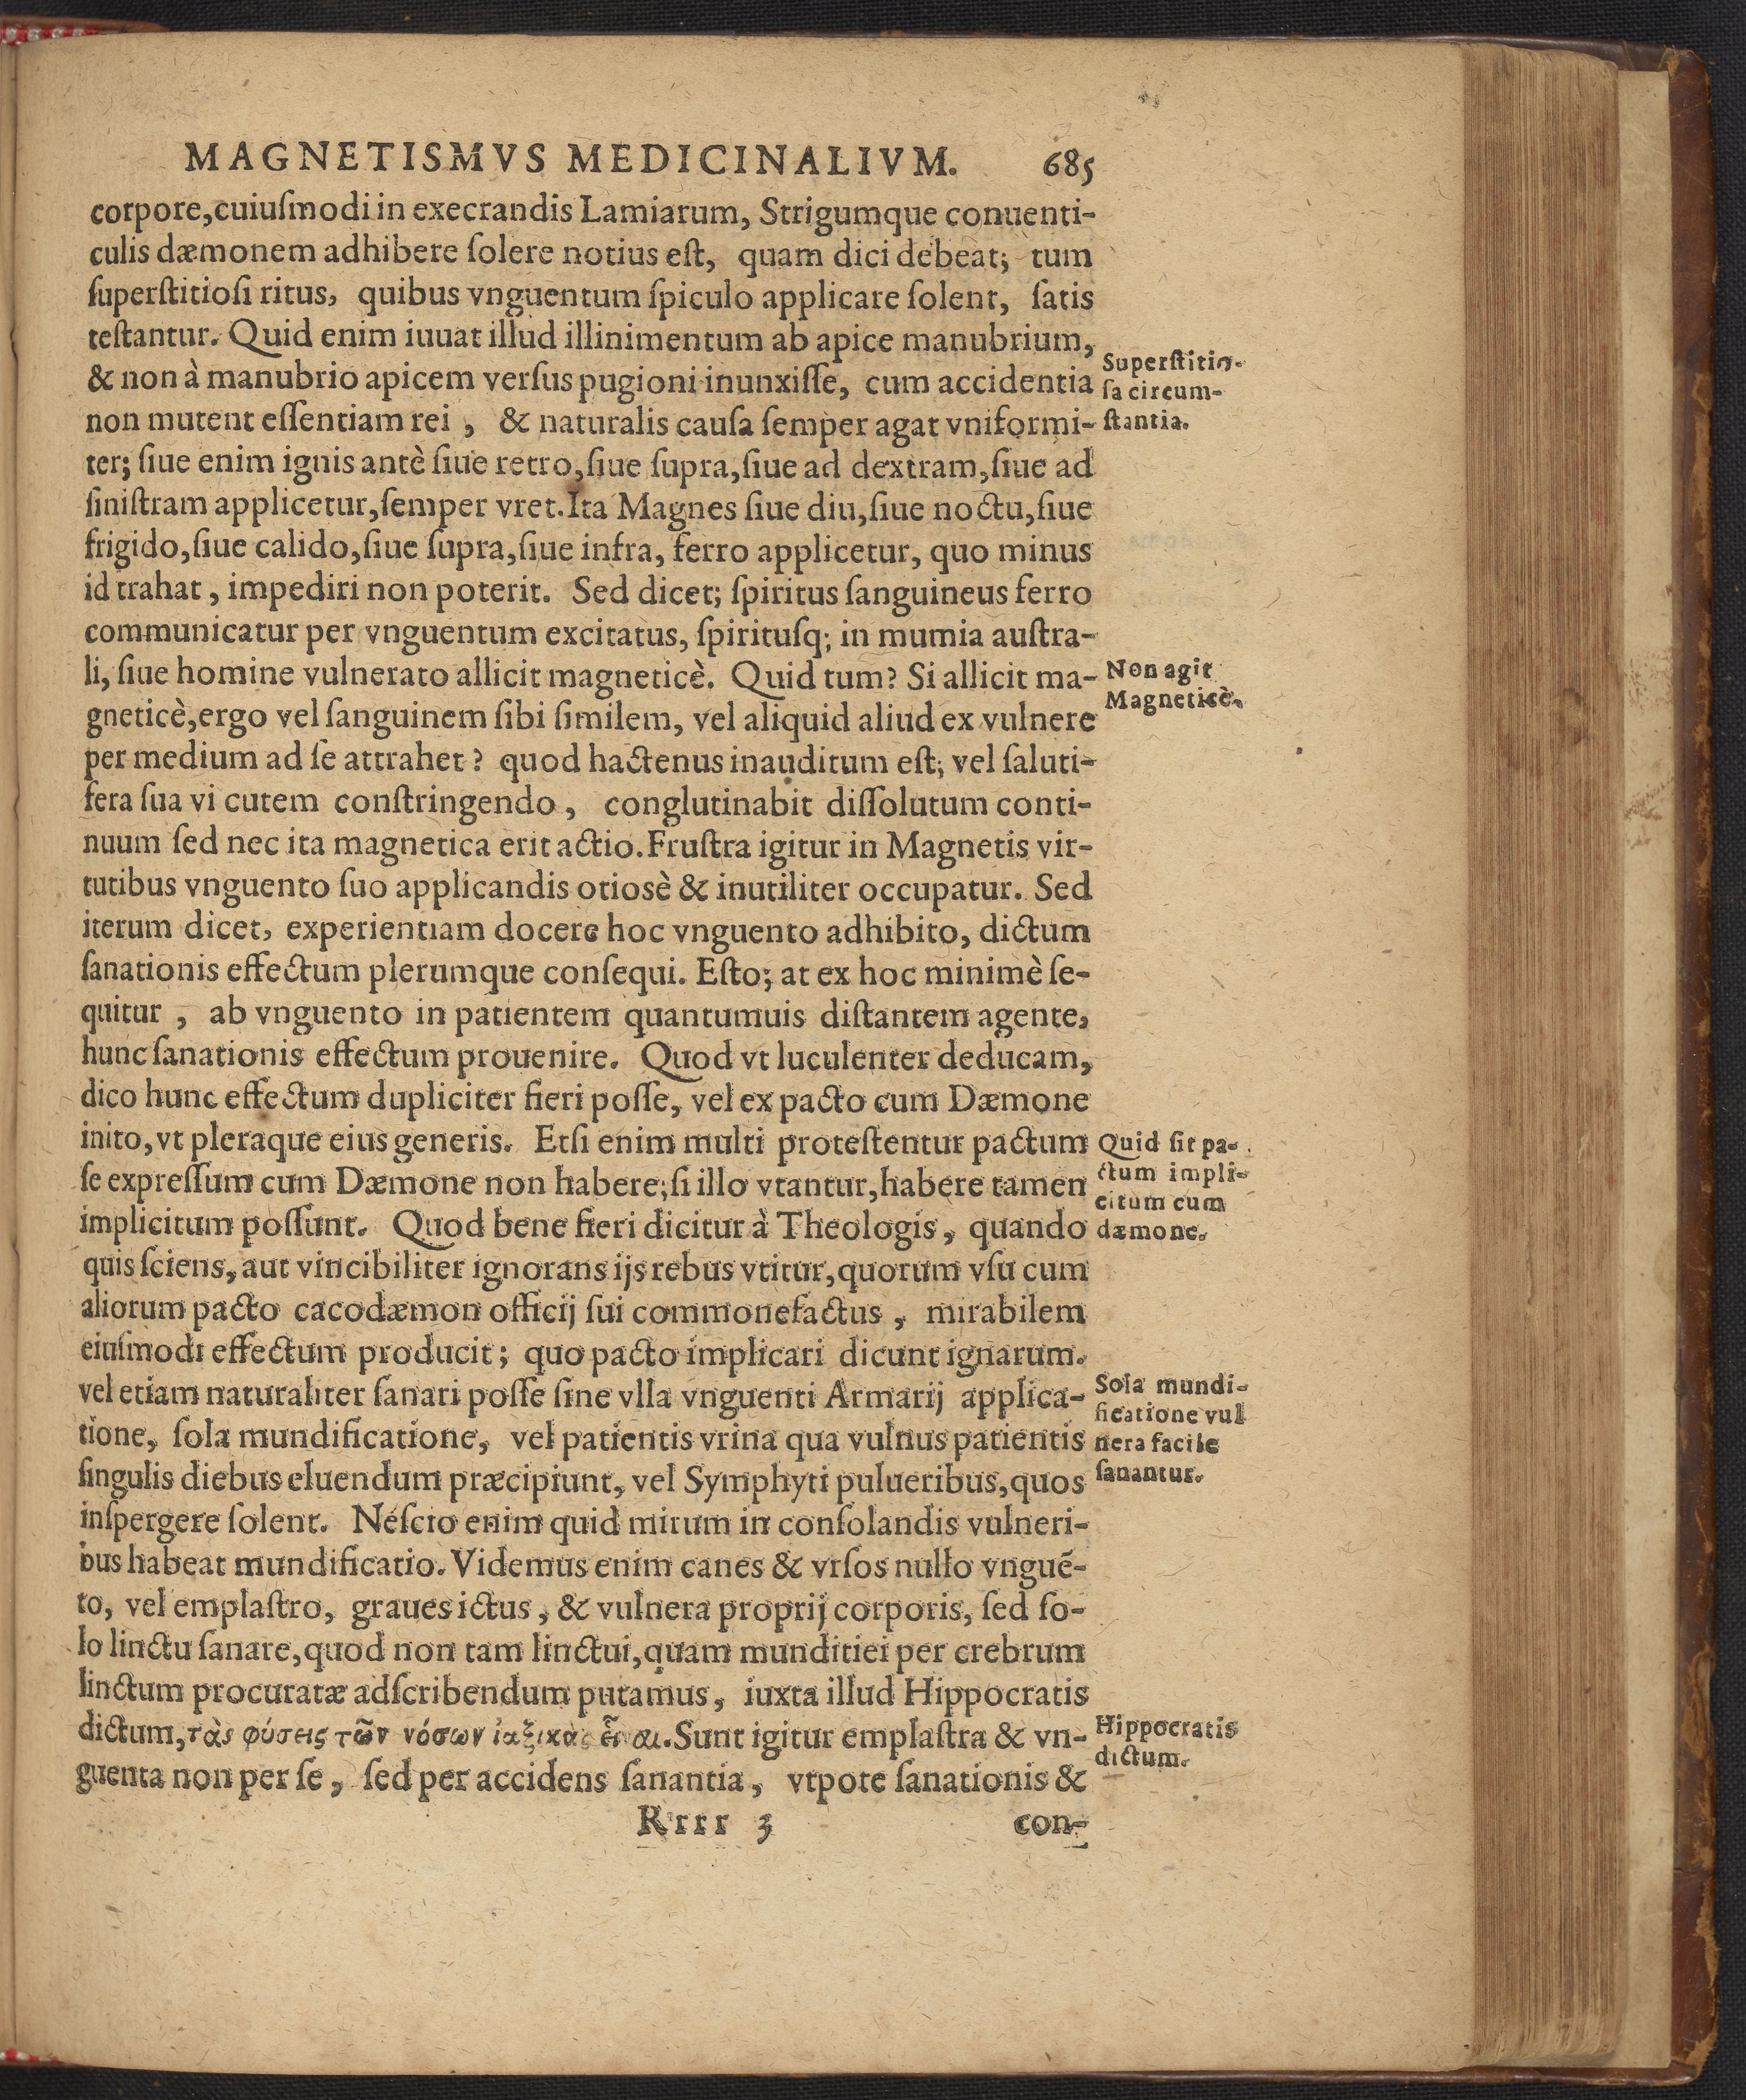 MAGNETISMVS MEDICINALIVM. 685
corpore, cuiuſmodi in execrandis Lamiarum, Strigumque conuenti-
culis dæmonem adhibere ſolere notius eſt, quam dici debeat; tum
ſuperſtitioſi ritus, quibus vnguentum ſpiculo applicare ſolent, ſatis
teſtantur. Quid enim iuuat illud illinimentum ab apice manubrium,
& non à manubrio apicem verſus pugioni inunxiſſe, cum accidentia
non mutent eſſentiam rei, & naturalis cauſa ſemper agat vniformi-
ter; ſiue enim ignis antè ſiue retro, ſiue ſupra, ſiue ad dextram, ſiue ad
ſiniſtram applicetur, ſemper vret. Ita Magnes ſiue diu, ſiue noctu, ſiue
frigido, ſiue calido, ſiue ſupra, ſiue infra, ferro applicetur, quo minus
id trahat, impediri non poterit. Sed dicet; ſpiritus ſanguineus ferro
communicatur per vnguentum excitatus, ſpirituſq; in mumia auſtra-
li, ſiue homine vulnerato allicit magneticè. Quid tum? Si allicit ma-
gneticè, ergo vel ſanguinem ſibi ſimilem, vel aliquid aliud ex vulnere
per medium ad ſe attrahet? quod hactenus inauditum eſt; vel ſaluti-
fera ſua vi cutem conſtringendo, conglutinabit diſſolutum conti-
nuum ſed nec ita magnetica erit actio. Fruſtra igitur in Magnetis vir-
tutibus vnguento ſuo applicandis otiosè & inutiliter occupatur. Sed
iterum dicet, experientiam docere hoc vnguento adhibito, dictum
ſanationis effectum plerumque conſequi. Eſto; at ex hoc minimè ſe-
quitur, ab vnguento in patientem quantumuis diſtantem agente,
hunc ſanationis effectum prouenire. Quod vt luculenter deducam,
dico hunc effectum dupliciter fieri poſſe, vel ex pacto cum Dæmone
inito, vt pleraque eius generis. Etſi enim multi proteſtentur pactum
ſe expreſſum cum Dæmone non habere; ſi illo vtantur, habere tamen
implicitum poſſunt. Quod bene fieri dicitur à Theologis, quando
quis ſciens, aut vincibiliter ignorans ijs rebus vtitur, quorum vſu cum
aliorum pacto cacodæmon officij ſui commonefactus, mirabilem
eiuſmodi effectum producit; quo pacto implicari dicunt ignarum.
vel etiam naturaliter ſanari poſſe ſine vlla vnguenti Armarij applica-
tione, ſola mundificatione, vel patientis vrina qua vulnus patientis
ſingulis diebus eluendum præcipiunt, vel Symphyti pulueribus, quos
inſpergere ſolent. Neſcio enim quid mirum in conſolandis vulneri-
bus habeat mundificatio. Videmus enim canes & vrſos nullo vnguẽ-
to, vel emplaſtro, graues ictus, & vulnera proprij corporis, ſed ſo-
lo linctu ſanare, quod non tam linctui, quam munditiei per crebrum
linctum procuratæ adſcribendum putamus, iuxta illud Hippocratis
dictum, τὰς φύσεις τῶν νόσων Sunt igitur emplaſtra & vn-
guenta non per ſe, ſed per accidens ſanantia, vtpote ſanationis &
Rrrr 3 con-
Superſtitio-
ſa circum-
ſtantia.
Non agit
Magneticè.
Quid ſit pa-
ctum impli-
citum cum
dæmone.
Sola mundi-
ficatione vul
nera facile
ſanantur.
Hippocratis
dictum.